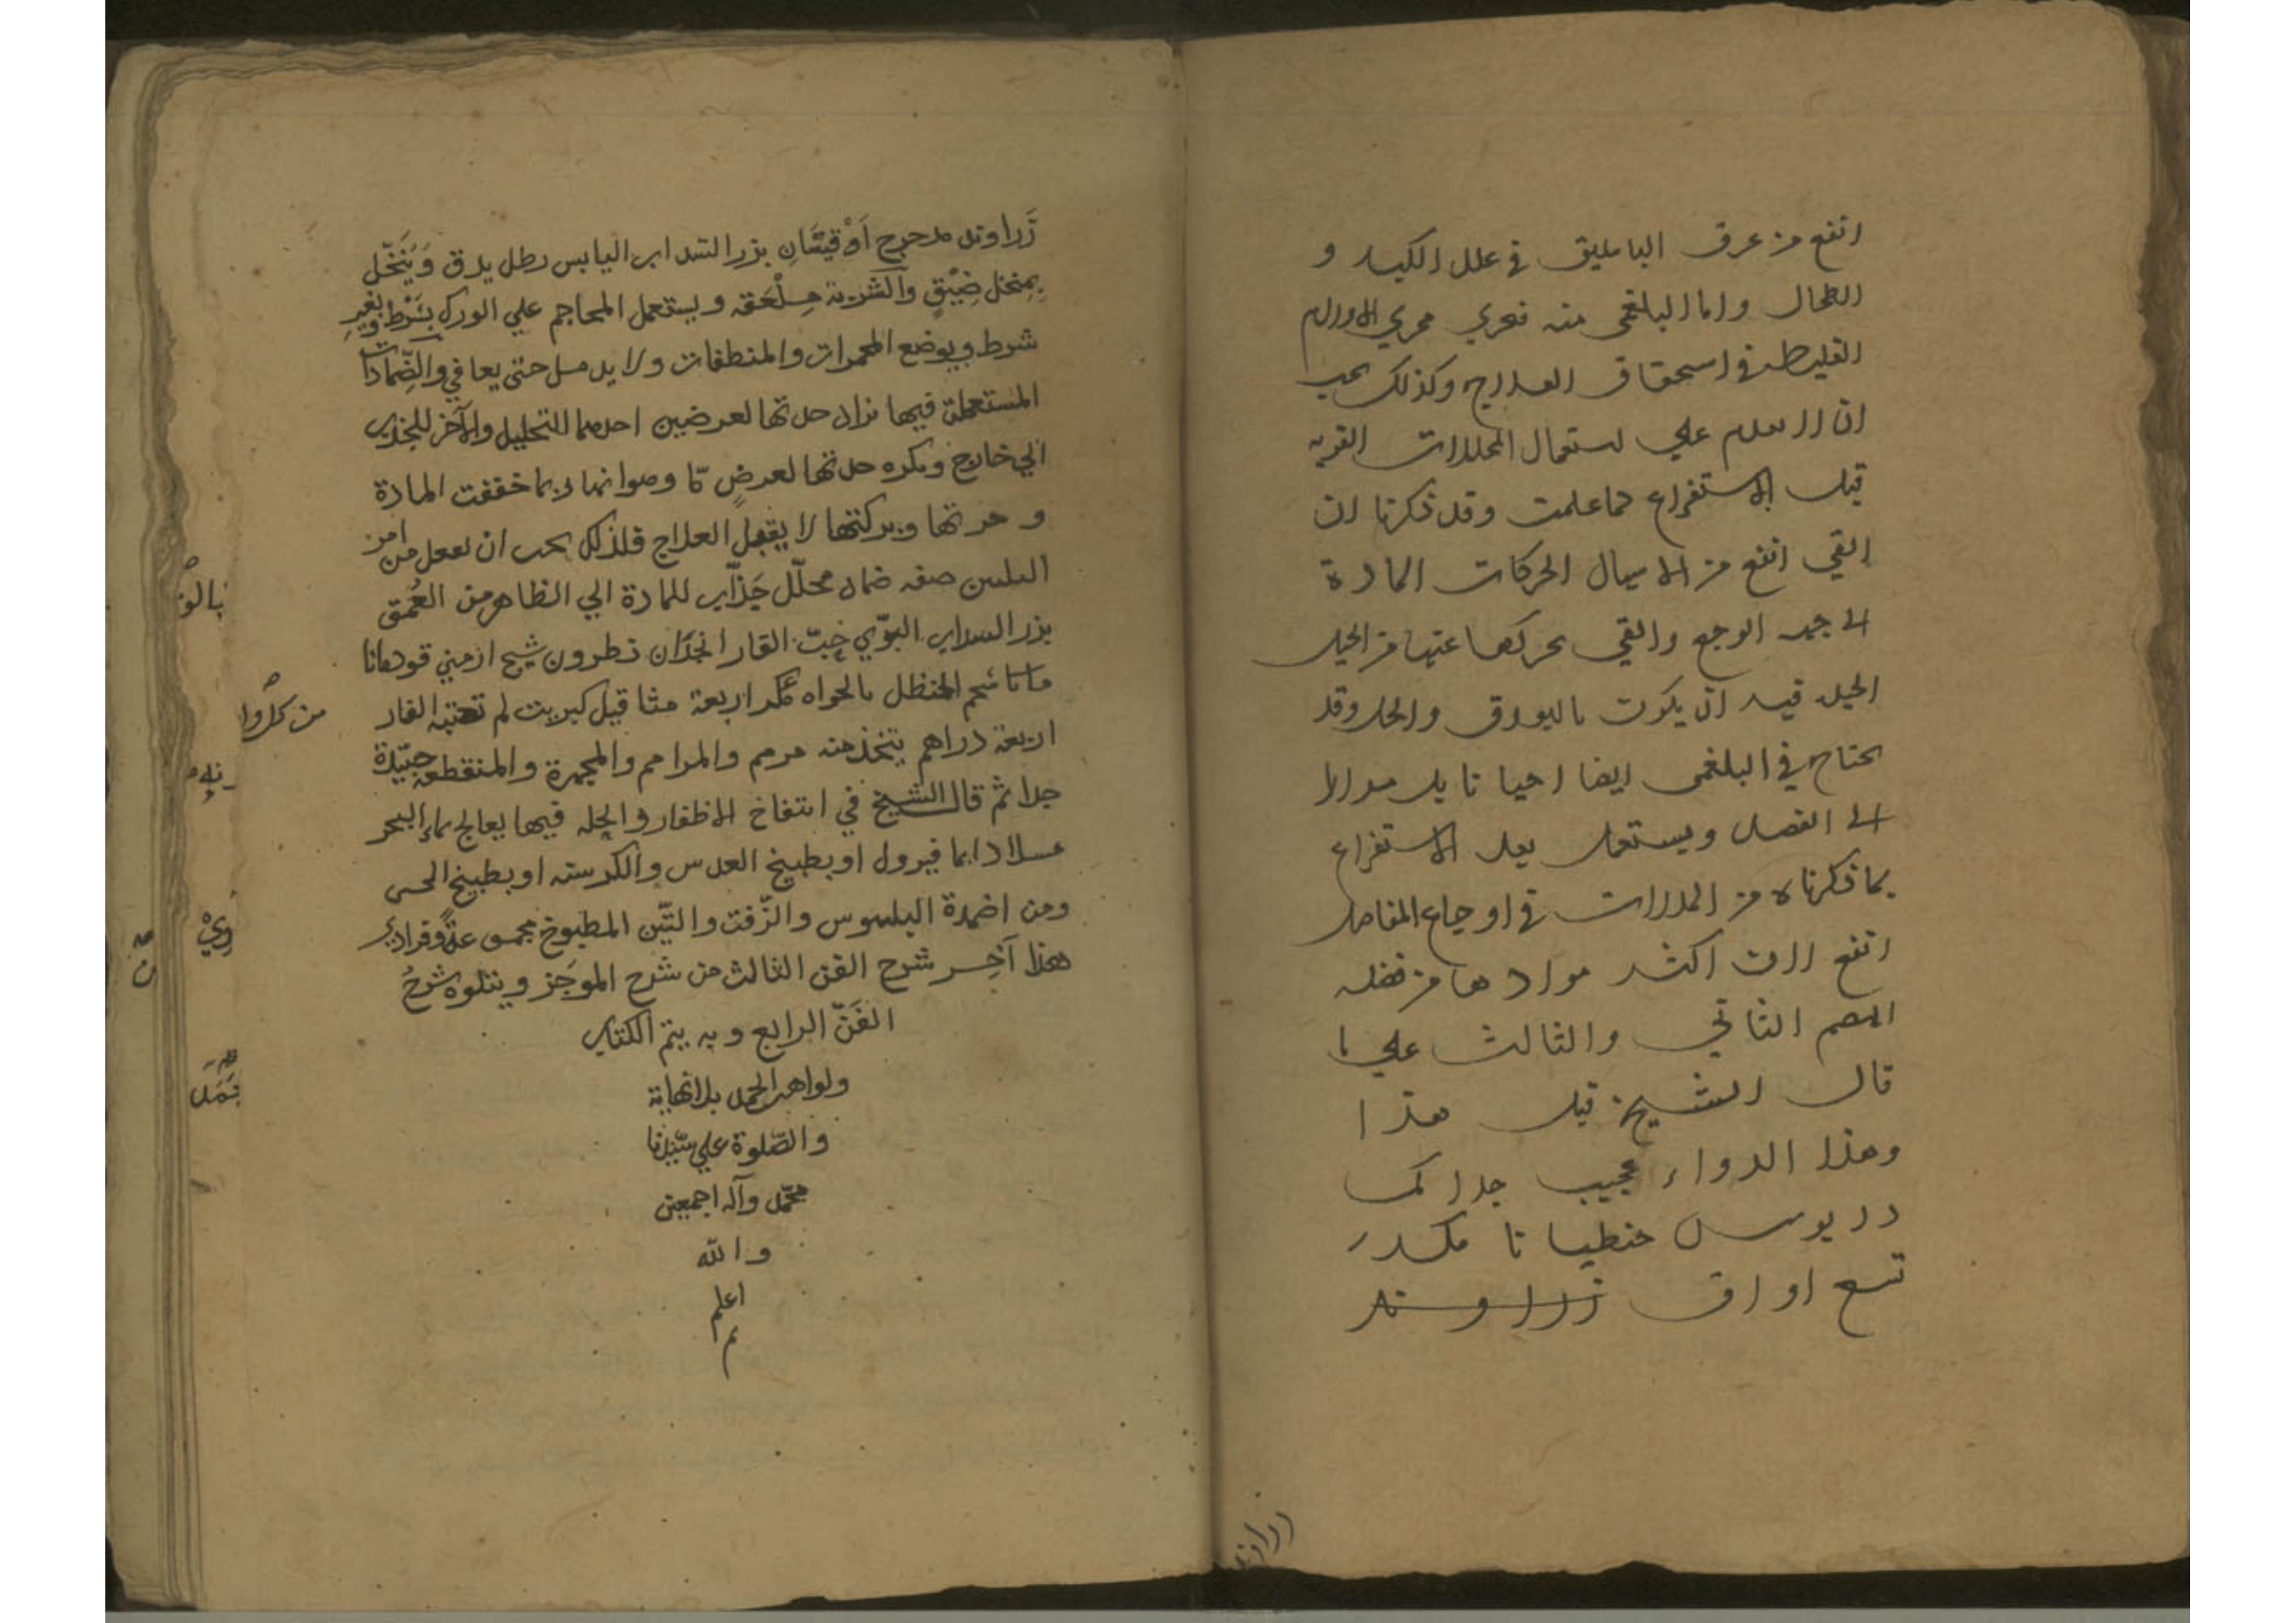 انفع من عرق الباسليق في علل الكبد و
الطحال واما البلغمي منه فيجري مجري الاورام
الغليظه في استحقاق العلاج وكذلك يجب
ان لا يقدم علي استعمال المحللات القويه
قبل الاستفراغ لما علمت وقد ذكرنا ان
القي انفع من الاسهال الحركات المادة
الي جهه الوجع والقي يحركها عنها من الحيل
الحيل فيه ان يكون بالبورق والخل وقد
يحتاج في البلغمي ايضا احيانا بل مرارا
الي الفصد ويستعمل بعد الاستفراغ
بما ذكرناه من المدرات في اوجاع المفاصل
انفع لان اكثر موادها من فضله
الهضم الثاني والثالث علي ما
قال الشيخ قبل هذا
وهذا الدواء عجيب جدا
جنطيانا
تسع اواق زراوند
زَراوند مدحرج اَوْقيتَانِ بزر السداب اليابس رطل يدق وَيُنَخّل
بِمنخل ضِيْقٍ والشربة مِلْعَقه ويستعمل المحاجم علي الورك بِشَرْط وبغيرِ
شرط ويوضع المحمرات والمنطفات ولا يدمل حتي يعافي والضِّمادات
المستعملة فيها تزاد حدتها لعرضين احدهما التحليل والآخر للجذب
الي خارج ويكره حدتها لعرضٍ مّا وهو انها ربما خففت المادة
و حرتها وتركتها لا يقبل العلاج فلذلك يجب ان يجعل من امر
الملين صفه ضماد محلّل جَذّاب للمادة الي الظاهر من العُمق
بزر السداب البرّي حَبّ القار انجدَان نطرون شيح ارمني قردمانا
شحم الحنظل اربعة مثاقيل كبريت لم تصبه النار
اربعة دراهم يتخذ منه مرهم والمراهم والمحمرة والمنقطعة جيّدة
جدا ثم قال الشيخ في انتفاخ الاظفار والحكه فيها يعالج بماء البحر
غسلا دايما فيزول او بطبيخ العدس والكرسنه او بطبيخ
ومن اضمدة البلبوس والزّفت والتّين المطبوخ مجموعةً وفرادي
هذا آخِر شرح الفن الثالث من شرح الموجَز ويتلوه شرحُ
الفَنّ الرابع وبه يتم الكتاب
ولواهب الحمد بلا نهاية
والصّلوة علي سيّدنا
محمّد وآله اجمعين
والله
اعلم
تم